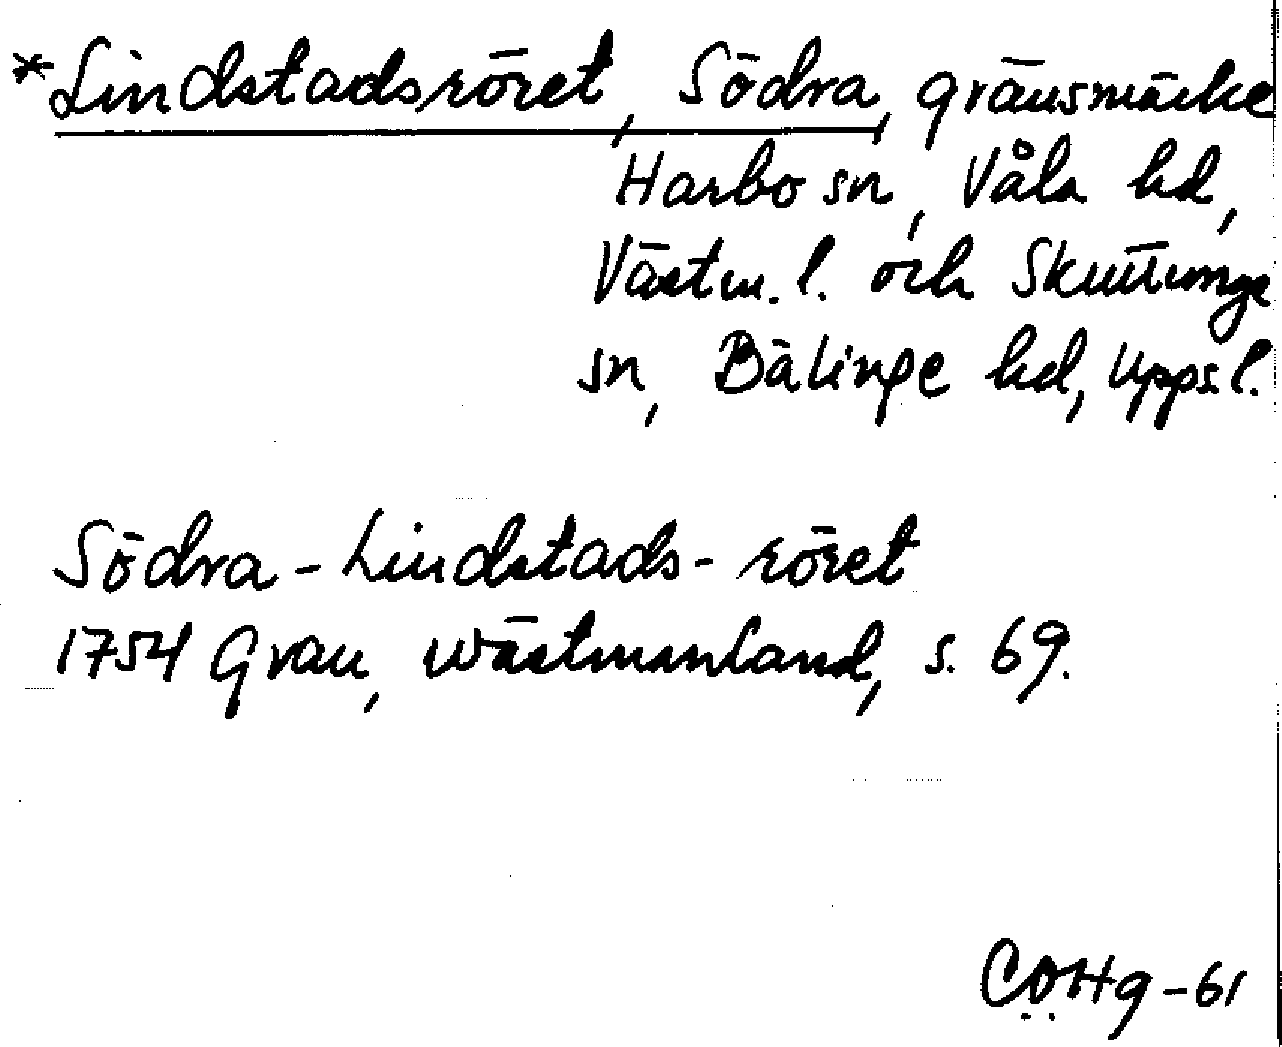 *Lindstadsröret, Södra, gränsmärke
Harbo sn, Våla hd,
Västm. l. och Skuttunge
sn, Bälinge hd, Upps. l.
Södra-Lindstads-röret
1754 Grau, Wästmanland, s. 69.
CÖHg-61